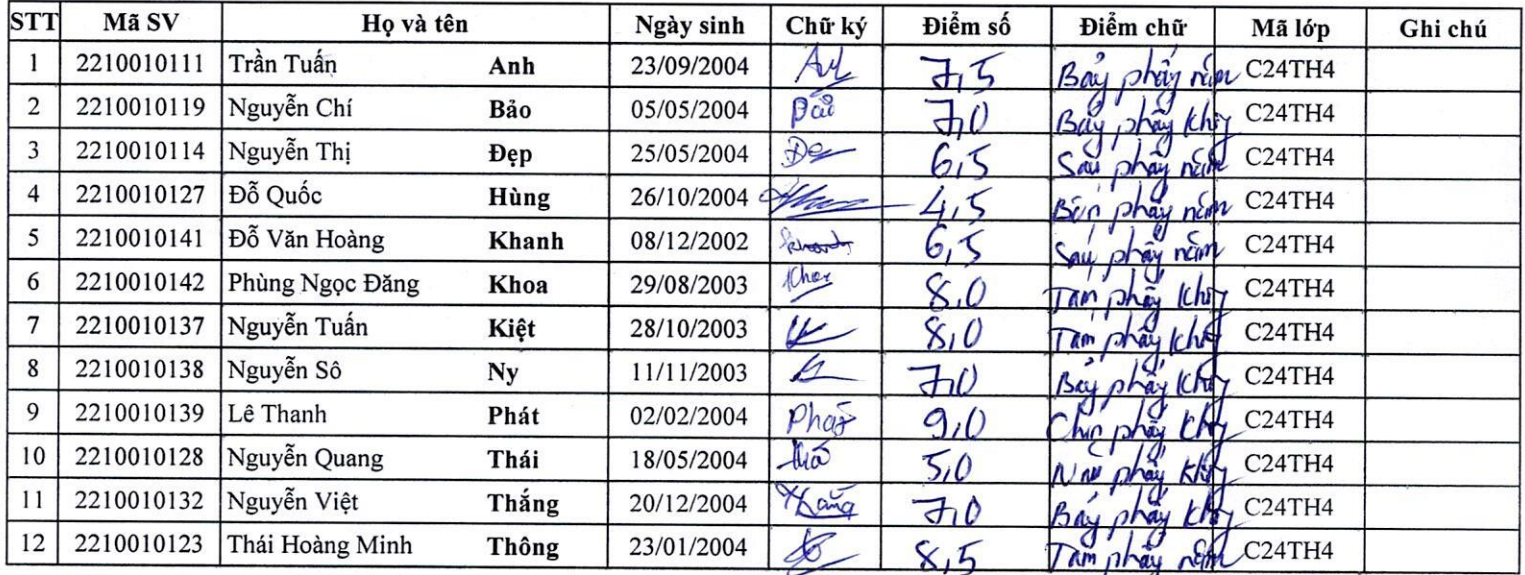 STT Mã SV Họ và tên Ngày sinh Chữ ký Điểm số Điểm chữ Mã lớp Ghi chú
1 2210010111 Trần Tuấn Anh 23/09/2004 Anh 7,5 Bảy phẩy năm C24TH4
2 2210010119 Nguyễn Chí Bảo 05/05/2004 7,0 Bảy phẩy không C24TH4
3 2210010114 Nguyễn Thị Đẹp 25/05/2004 Đẹp 6,5 Sáu phẩy năm C24TH4
4 2210010127 Đỗ Quốc Hùng 26/10/2004 4,5 Bốn phẩy năm C24TH4
5 2210010141 Đỗ Văn Hoàng Khanh 08/12/2002 6,5 Sáu phẩy năm C24TH4
6 2210010142 Phùng Ngọc Đăng Khoa 29/08/2003 Khoa 8,0 Tám phẩy không C24TH4
7 2210010137 Nguyễn Tuấn Kiệt 28/10/2003 8,0 Tám phẩy không C24TH4
8 2210010138 Nguyễn Sô Ny 11/11/2003 7,0 Bảy phẩy không C24TH4
9 2210010139 Lê Thanh Phát 02/02/2004 Phát 9,0 Chín phẩy không C24TH4
10 2210010128 Nguyễn Quang Thái 18/05/2004 5,0 Năm phẩy không C24TH4
11 2210010132 Nguyễn Việt Thắng 20/12/2004 Thắng 7,0 Bảy phẩy không C24TH4
12 2210010123 Thái Hoàng Minh Thông 23/01/2004 8,5 Tám phẩy năm C24TH4